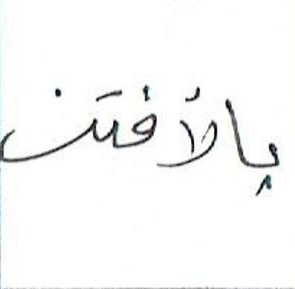 بالأفتن